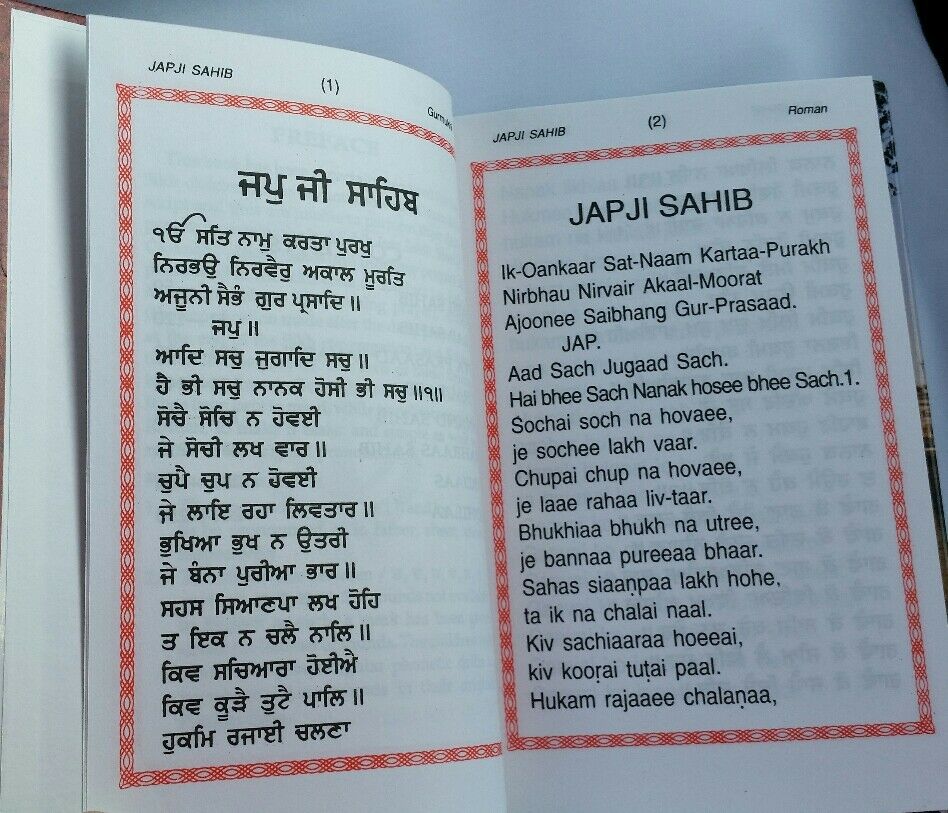 JAPJI SAHIB
(1)
Gurmukhi
ਜਪੁ ਜੀ ਸਾਹਿਬ
ੴ ਸਤਿ ਨਾਮੁ ਕਰਤਾ ਪੁਰਖੁ
ਨਿਰਭਉ ਨਿਰਵੈਰੁ ਅਕਾਲ ਮੂਰਤਿ
ਅਜੂਨੀ ਸੈਭੰ ਗੁਰ ਪ੍ਰਸਾਦਿ॥
ਜਪੁ॥
ਆਦਿ ਸਚੁ ਜੁਗਾਦਿ ਸਚੁ॥
ਹੈ ਭੀ ਸਚੁ ਨਾਨਕ ਹੋਸੀ ਭੀ ਸਚੁ॥੧॥
ਸੋਚੈ ਸੋਚਿ ਨ ਹੋਵਈ
ਜੇ ਸੋਚੀ ਲਖ ਵਾਰ॥
ਚੁਪੈ ਚੁਪ ਨ ਹੋਵਈ
ਜੇ ਲਾਇ ਰਹਾ ਲਿਵਤਾਰ॥
ਭੁਖਿਆ ਭੁਖ ਨ ਉਤਰੀ
ਜੇ ਬੰਨਾ ਪੁਰੀਆ ਭਾਰ॥
ਸਹਸ ਸਿਆਣਪਾ ਲਖ ਹੋਹਿ
ਤ ਇਕ ਨ ਚਲੈ ਨਾਲਿ॥
ਕਿਵ ਸਚਿਆਰਾ ਹੋਈਐ
ਕਿਵ ਕੂੜੈ ਤੁਟੈ ਪਾਲਿ॥
ਹੁਕਮਿ ਰਜਾਈ ਚਲਣਾ
JAPJI SAHIB
(2)
Roman
JAPJI SAHIB
Ik-Oankaar Sat-Naam Kartaa-Purakh
Nirbhau Nirvair Akaal-Moorat
Ajoonee Saibhang Gur-Prasaad.
JAP.
Aad Sach Jugaad Sach.
Hai bhee Sach Nanak hosee bhee Sach.1.
Sochai soch na hovaee,
je sochee lakh vaar.
Chupai chup na hovaee,
je laae rahaa liv-taar.
Bhukhiaa bhukh na utree,
je bannaa pureeaa bhaar.
Sahas siaaṇpaa lakh hohe,
ta ik na chalai naal.
Kiv sachiaaraa hoeeai,
kiv kooṛai tuṭai paal.
Hukam rajaaee chalaṇaa,